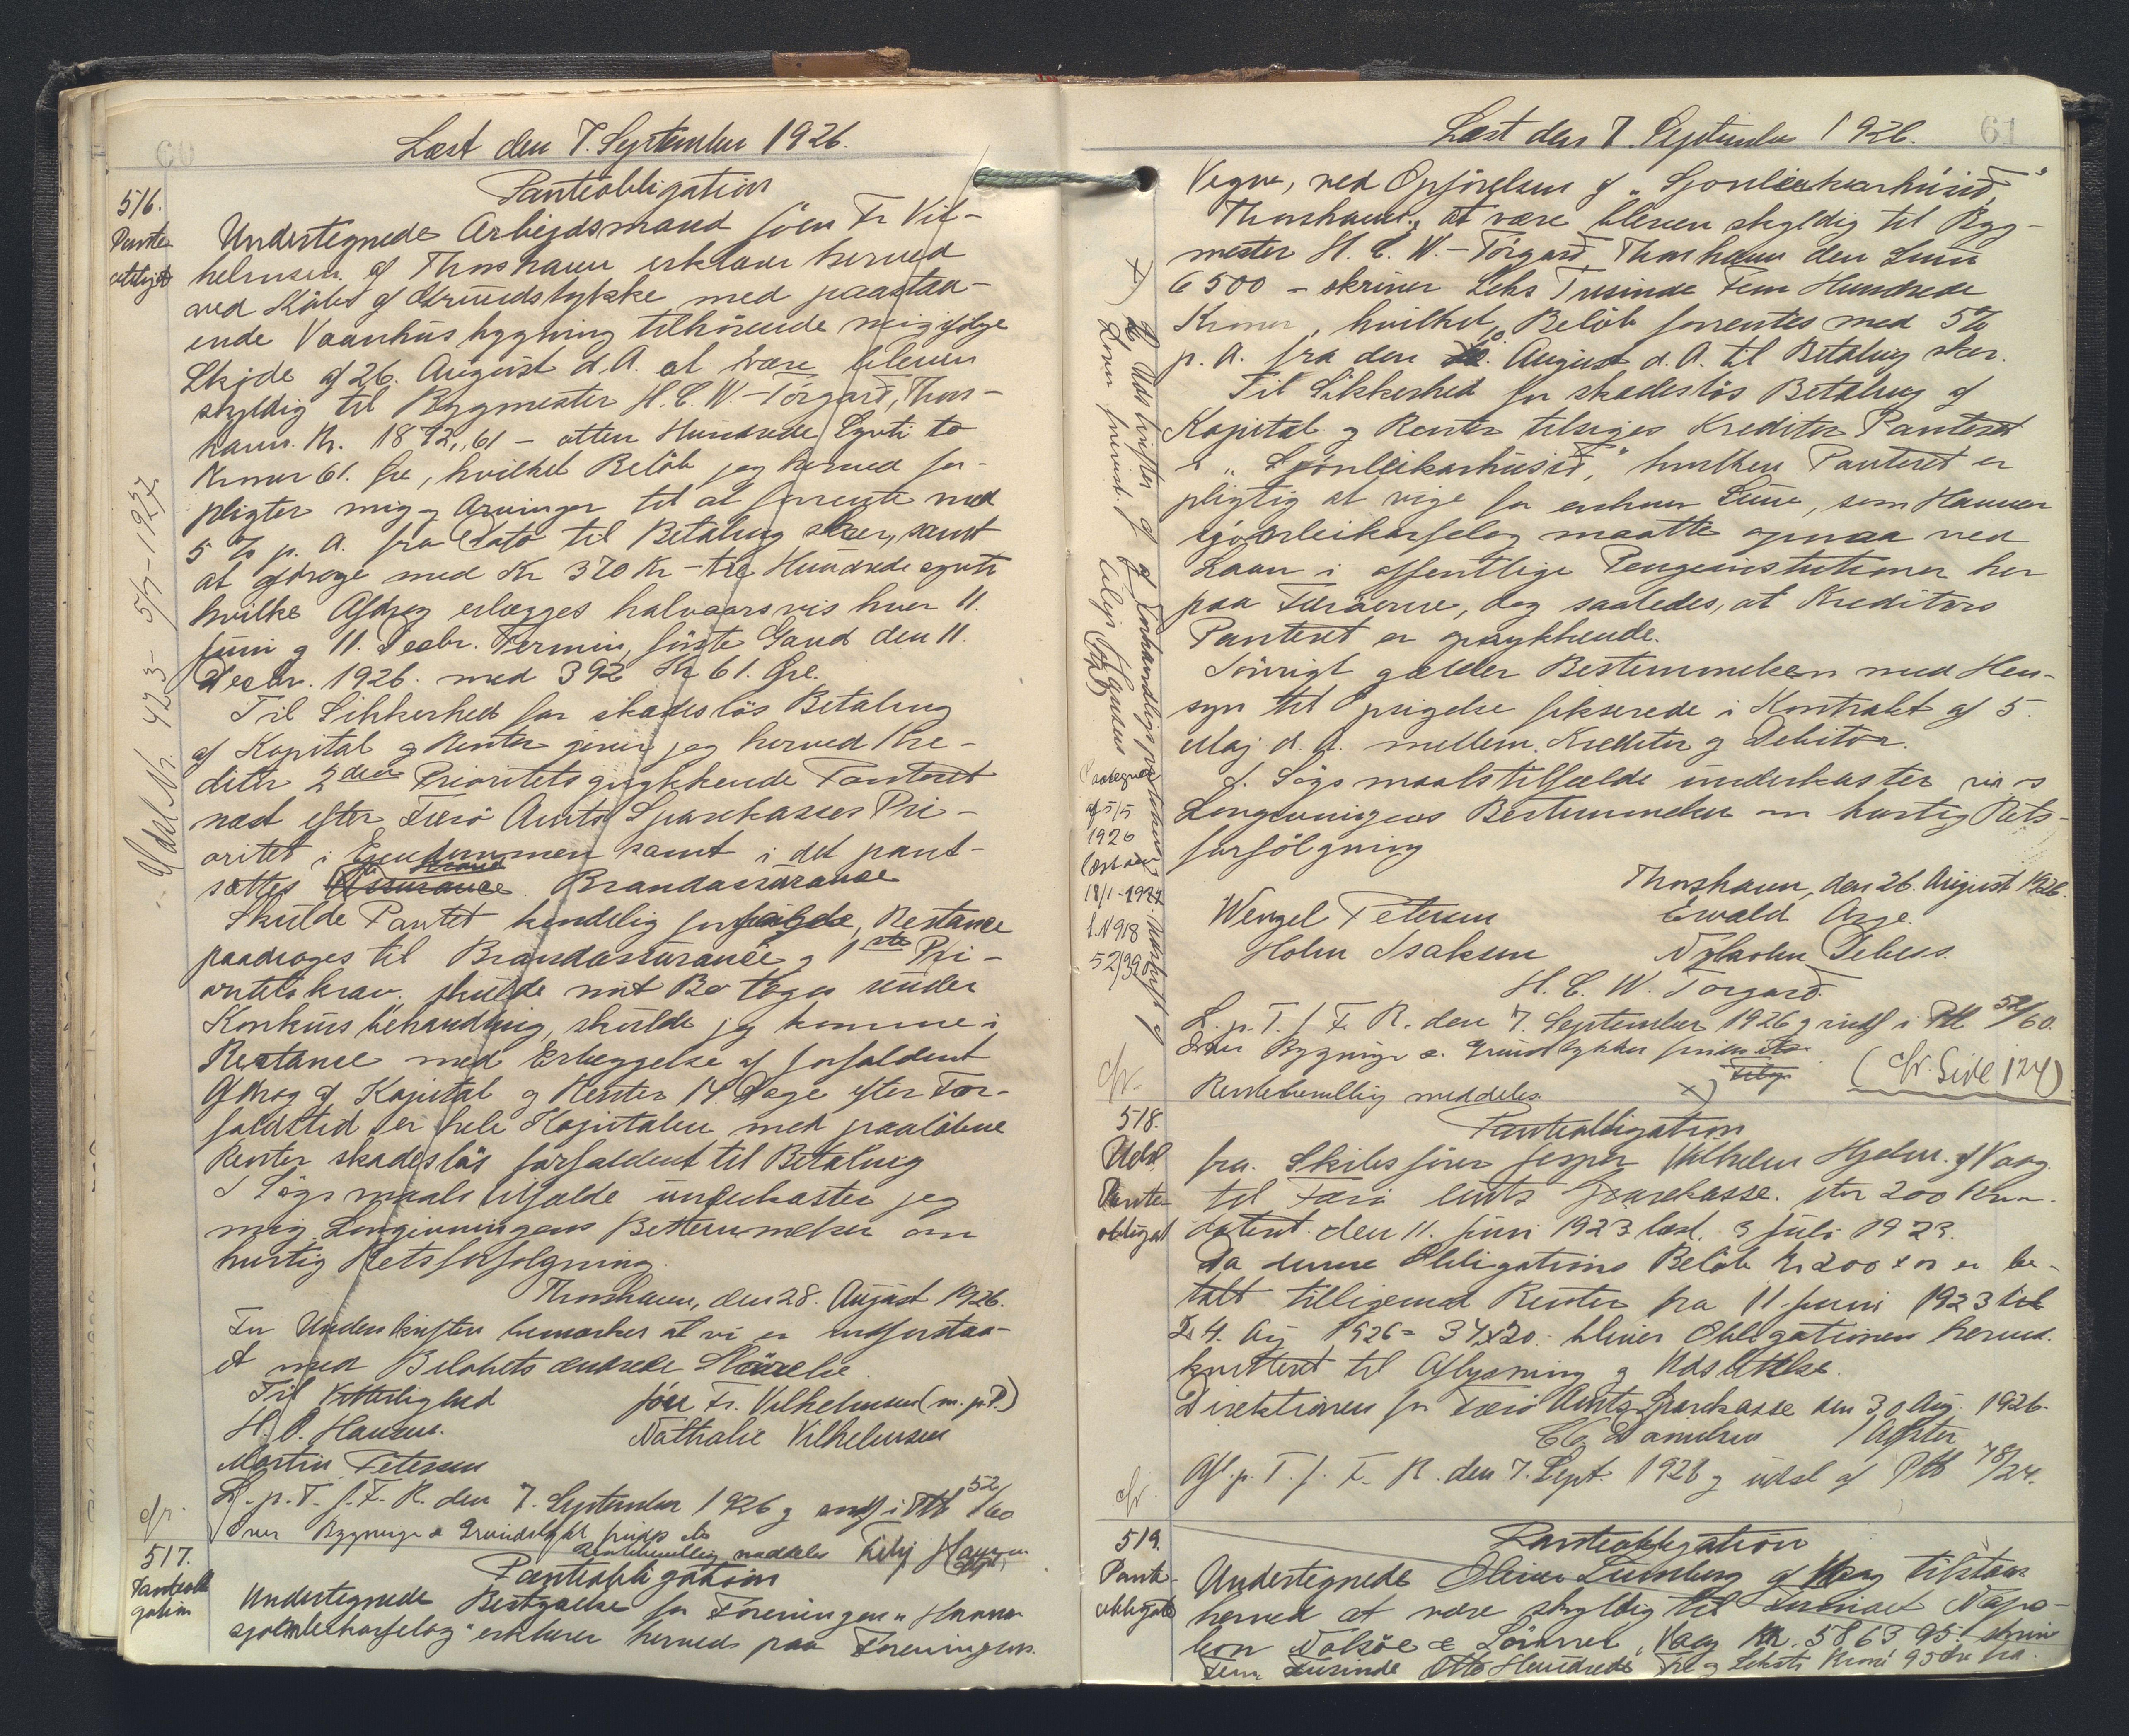 60
Læst den 7. September 1926.
516.
Pante
obligat
Panteobligation
Undertegnede Arbejdsmand Jóen Fr Vil-
helmsen af Thorshavn erklærer herved
ved Købet af Grundstykke med paastaa-
ende Vaanhusbygning tilhørende mig ifølge
Skjøde af 26. August d. A. at være bleven
skyldig til Bygmester H. C. W. Tórgarð, Thors-
havn. Kr. 1892,61 - atten Hundrede Syvti to
Kroner 61. Øre, hvilket Beløb jeg herved for-
pligter mig og Arvinger til at forrente med
5 % p. A. fra Dato til Betaling sker, samt
at afdrage med Kr 370 Kr - tre Hundrede syvti
hvilke Afdrag erlægges halvaarsvis hver 11.
Juni og 11. Decbr. Termin, første Gang den 11.
Decbr. 1926. med 392 Kr 61. Øre.
Til Sikkerhed for skadesløs Betaling
af Kapital og Renter giver jeg herved Kre-
ditor 2den Prioritets oprykkende Panteret
næst efter Færø Amts Sparekasses Pri-
oritet i Ejendommen samt i det pant-
sattes Assurance Brandassurance
Skulde Pantet kendelig forfalde, Restance
paadrages til Brandassurance og 1ste Pri-
oritetskrav, skulde mit Bo tages under
Konkursbehandling, skulde jeg komme i
Restance med Erlæggelse af forfaldent
Afdrag af Kapital og Renter 14. Dage efter For-
faldstid er hele Kapitalen med paaløbne
Renter skadesløs forfaldent til Betaling
I Søgsmaalstilfælde underkaster jeg
mig Lovgivningens Bestemmelser om
hurtig Retsforfølgning.
Thorshavn, den 28. August 1926.
Før Underskriften bemærkes at vi er indforstaa-
et med Beløbets ændrede Størrelse
Til Vitterlighed
Jóen Fr. Vilhelmsen (m. p. P.)
H. P. Hansen.
Nathalie Vilhelmsen
Martin Petersen
L. p. T. f. F. R. den 7. September 1926 og indf i Ptb 52/60
Over Bygninge & Grundstykke
Rentebevilling meddeles
cfr.
Udsl Nr. 423 - 5/7-1927
517.
Panteobli
gation
Panteobligation
Undertegnede Bestyrelse for Foreningen "Havnar
sjónleikarfelag" erklærer herved paa Foreningens
61
Læst den 7. September 1926.
Vegne, ved Opførelsen af "Sjónleikarhúsið,"
Thorshavn, at være bleven skyldig til Byg-
mester H. C. W. Tórgarð Thorshavn den Sum
6500 - skriver Seks Tusinde Fem Hundrede
Kroner, hvilket Beløb forrentes med 5%
p. A. fra den August d. A. til Betaling sker.
Til Sikkerhed for skadesløs Betaling af
Kapital og Renter tilsiges Kreditor Panteret
i "Sjónleikarhúsið," hvilken Panteret er
pligtig at vige for enhver Sum, som Havnar
sjónleikarfelag maatte opnaa ved
Laan i offentlige Pengeinstitutioner her
paa Færøerne, dog saaledes, at Kreditors
Panteret er oprykkende.
Iøvrigt gælder Bestemmelsen med Hen-
syn til Opsigelse fikserede i Kontrakt af 5.
Maj d. A. mellem Kreditor og Debitor.
I Søgsmaalstilfælde underkaster vi os
Lovgivningens Bestemmelser om hurtig Rets-
forfølgning
Thorshavn, den 26. August 1926.
Wenzel Petersen
Ewald Arge.
Holm Isaksen
H. C. W. Torgarð.
L. p. T. f. F. R. den 7. September 1926 og indf i Ptb 52/60.
Over Bygninge & Grundstykker
Rentebevilling meddeles.
x)
(cfr. Side 124)
cfr.
Paategnet
af 5/5
1926
læst den
18/1-1927
L.N 918
52/390
518.
Udsl
Pante
obligat
Panteobligation
fra Skibsfører Jesper Vilhelm Hjelm af Vaag
til Færø Amts Sparekasse. stor 200 Kroner
dateret den 11. Juni 1923 læst. 3 Juli 1923.
Da denne Obligations Beløb Kr 200 er be-
talt tilligemed Renter fra 11 Juni 1923 til
24. Aug 1926 = 34x20 - bliver Obligationen herved
kvitteret til Aflysning og Udslettelse.
Direktionen for Færø Amts Sparekasse den 30 Aug. 1926.
Danielsen
Afl. p. T. f. F. R. den 7. Sept. 1926 og udsl af Ptb 48/24.
cfr.
519.
Pante-
obligat
Panteobligation
Undertegnede af Vaag tilstaar
herved at være skyldig til Firmaet Napo-
leon Nolsøe & Sönnel, Vaag Kr. 5863 95. skriver
Fem Tusinde Otte Hundrede Tre og Seksti Kroner 95 Øre fra